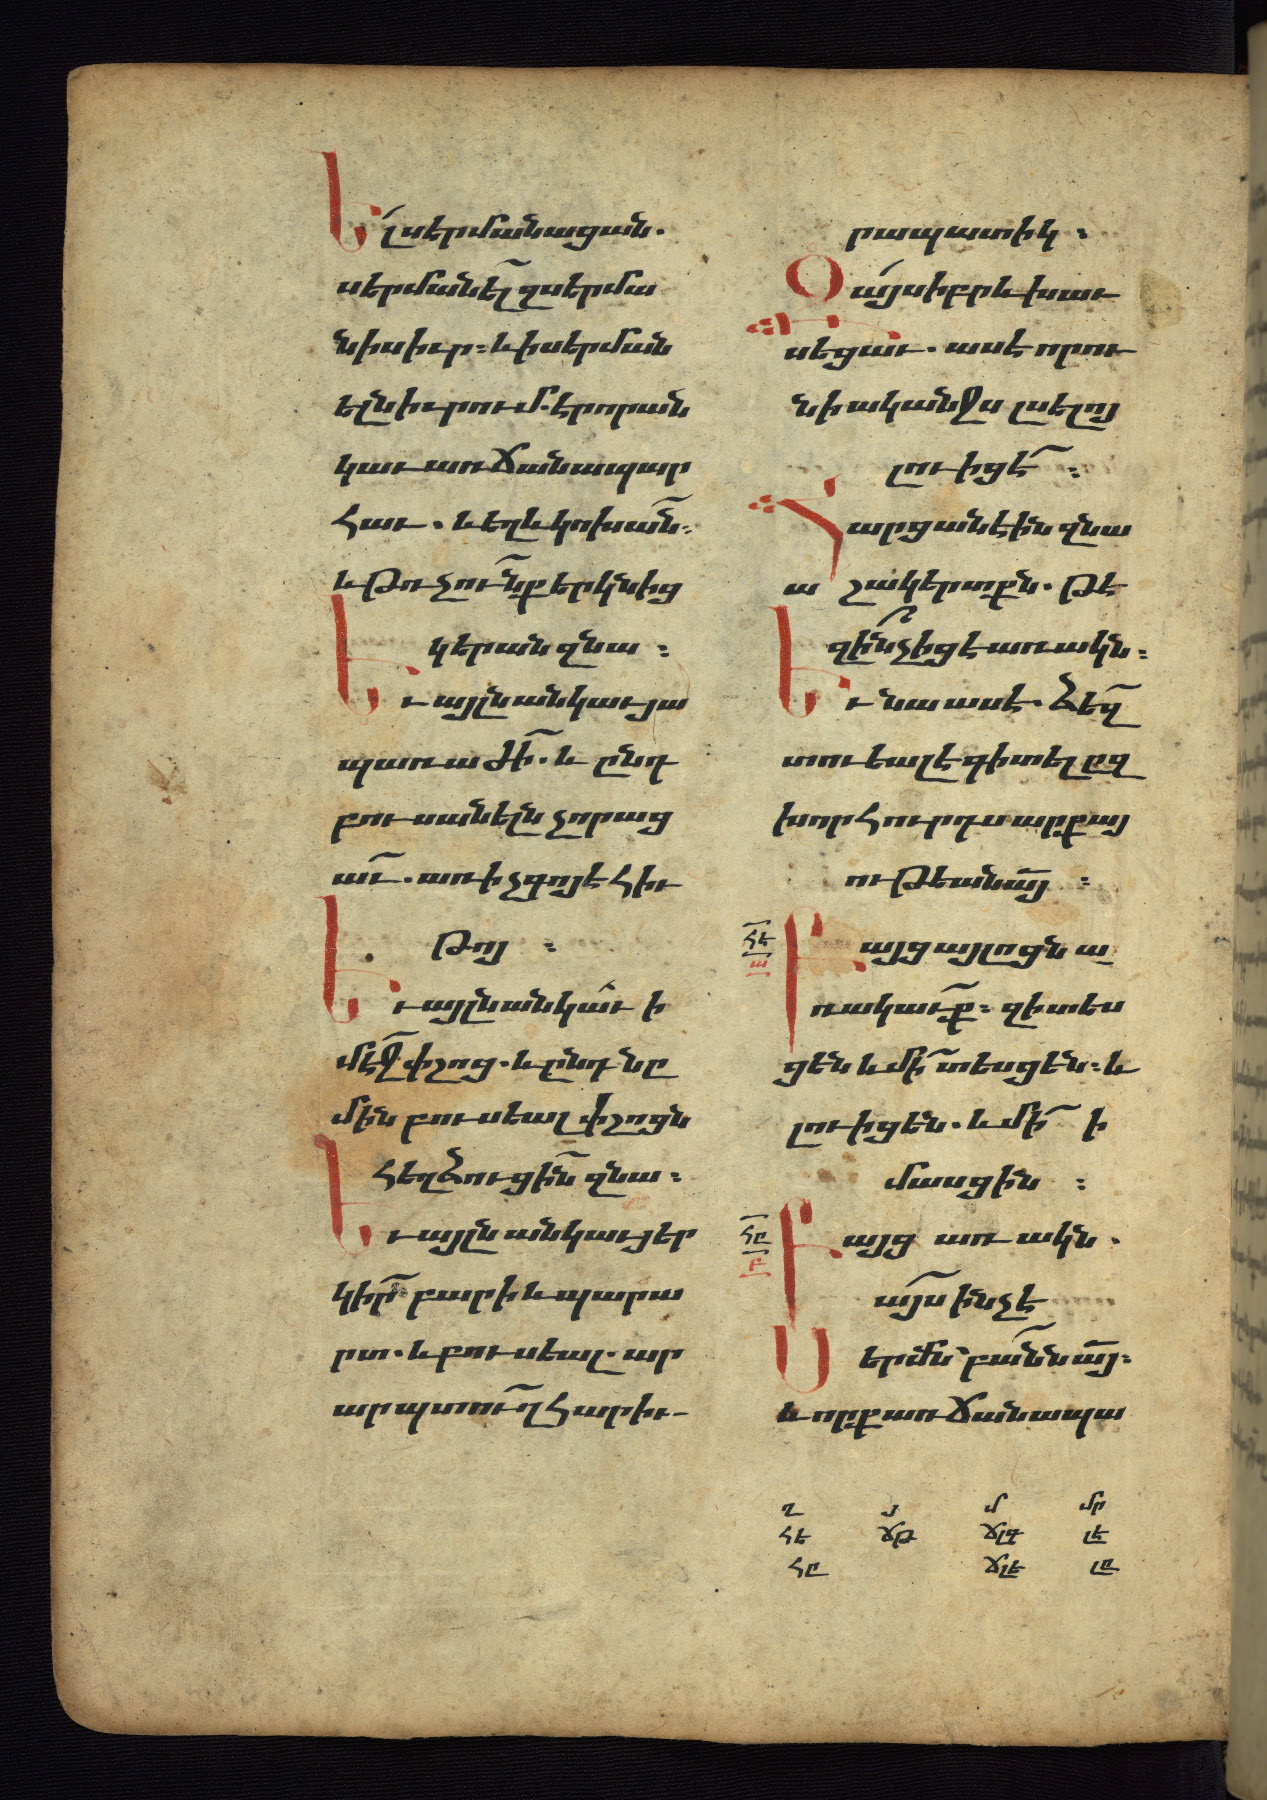 Ել սերմանացան.
սերմանել զսերմա
նիսիւր։ եւ ի սերման
ելն իւրում. է որ ան
կաւ առ ճանապար
հաւ. եւ եղեւ կոխան։
եւ թռչունք երկնից
կերան զնա։
Եւ այլն անկաւ յա
պառաժի. եւ ընդ
բուսանելն չորաց
աւ. առ ի չգոյէ հիւ
թոյ։
Եւ այլն անկաւ ի
մէջ փշոց. եւ ընդ նը
մին բուսեալ փշոցն
հեղձուցին զնա։
Եւ այլն անկաւ յեր
կիր բարի եւ պարա
րտ. եւ բուսեալ. ար
ար պտուղ հարիւ-
րապատիկ։
Օայսիբրեւ խաւ
սեցաւ. ասէ որու
նի ականջս լսելոյ
լուիցէ։
Հարցանէին զնա
ա շակերտքն. թէ
զինչ իցէ առակն։
Եւ նա ասէ. ձեզ
տուեալ է գիտել ըզ
խորհուրդս արքայ
ութեանայ։
հէ
ա
Բայց այլոցն ա
ռակաւք։ զի տես
ցեն եւ մի տեսցեն։ եւ
լուիցեն. եւ մի ի
մասցին։
հը
բ
Բայց առակն.
այս ինչ է
Սերմն՝ բանն այ։
եւ որք առ ճանապա
ղ յ մ մր
հէ ճթ ճլգ լէ
հը ճլէ լը